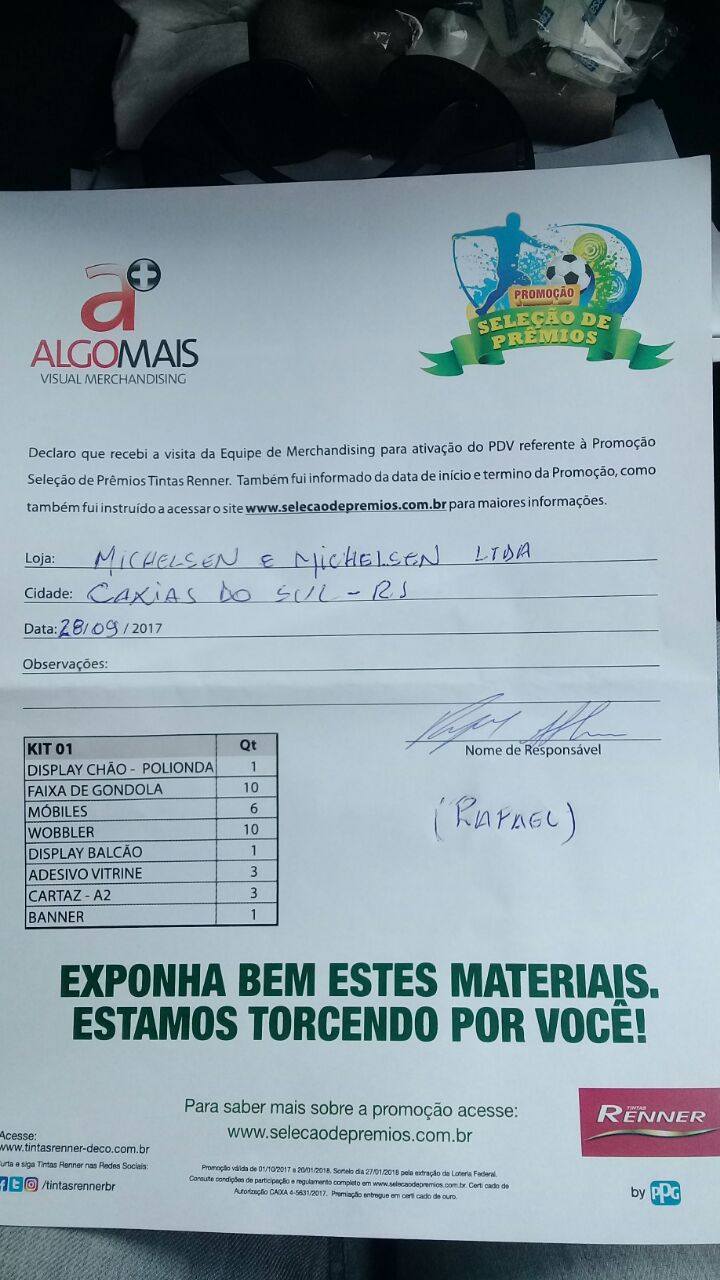 a+
ALGOMAIS
VISUAL MERCHANDISING
PROMOÇÃO
SELEÇÃO DE
PRÊMIOS
Declaro que recebi a visita da Equipe de Merchandising para ativação do PDV referente à Promoção
Seleção de Prêmios Tintas Renner. Também fui informado da data de início e termino da Promoção, como
também fui instruído a acessar o site www.selecaodepremios.com.br para maiores informações.
Loja: MICHELSEN E MICHELSEN LTDA
Cidade: CAXIAS DO SUL - RS
Data: 28/09/2017
Observações:
Nome de Responsável
(RAFAEL)
KIT 01 Qt
DISPLAY CHÃO - POLIONDA 1
FAIXA DE GONDOLA 10
MÓBILES 6
WOBBLER 10
DISPLAY BALCÃO 1
ADESIVO VITRINE 3
CARTAZ - A2 3
BANNER 1
EXPONHA BEM ESTES MATERIAIS.
ESTAMOS TORCENDO POR VOCÊ!
Para saber mais sobre a promoção acesse:
www.selecaodepremios.com.br
TINTAS
RENNER
Acesse:
www.tintasrenner-deco.com.br
urta e siga Tintas Renner nas Redes Sociais:
/tintasrennerbr
Promoção válida de 01/10/2017 a 20/01/2018. Sorteio dia 27/01/2018 pela extração da Loteria Federal.
Consulte condições de participação e regulamento completo em www.selecaodepremios.com.br. Certi cado de
Autorização CAIXA 4-5631/2017. Premiação entregue em certi cado de ouro.
by PPG